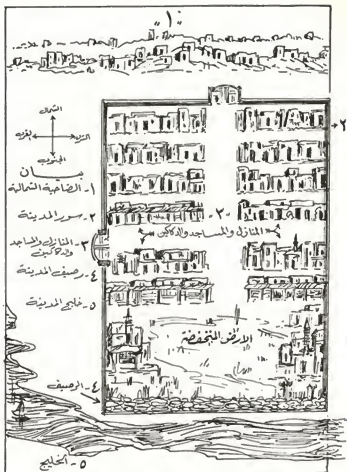 -١-
الشمال
الجنوب
بيان
١- الضاحية الشمالية
٢- سور المدينة
٣- المنازل والمساجد
والدكاكين
٤- رصيف المدينة
٥- خليج المدينة
٢
-٣-
المنازل والمساجد والدكاكين
الارض المنخفضة
٤- الرصيف
٥- الخليج